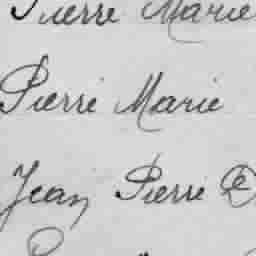 Pierre Marie
Pierre Marie
Jean Pierre